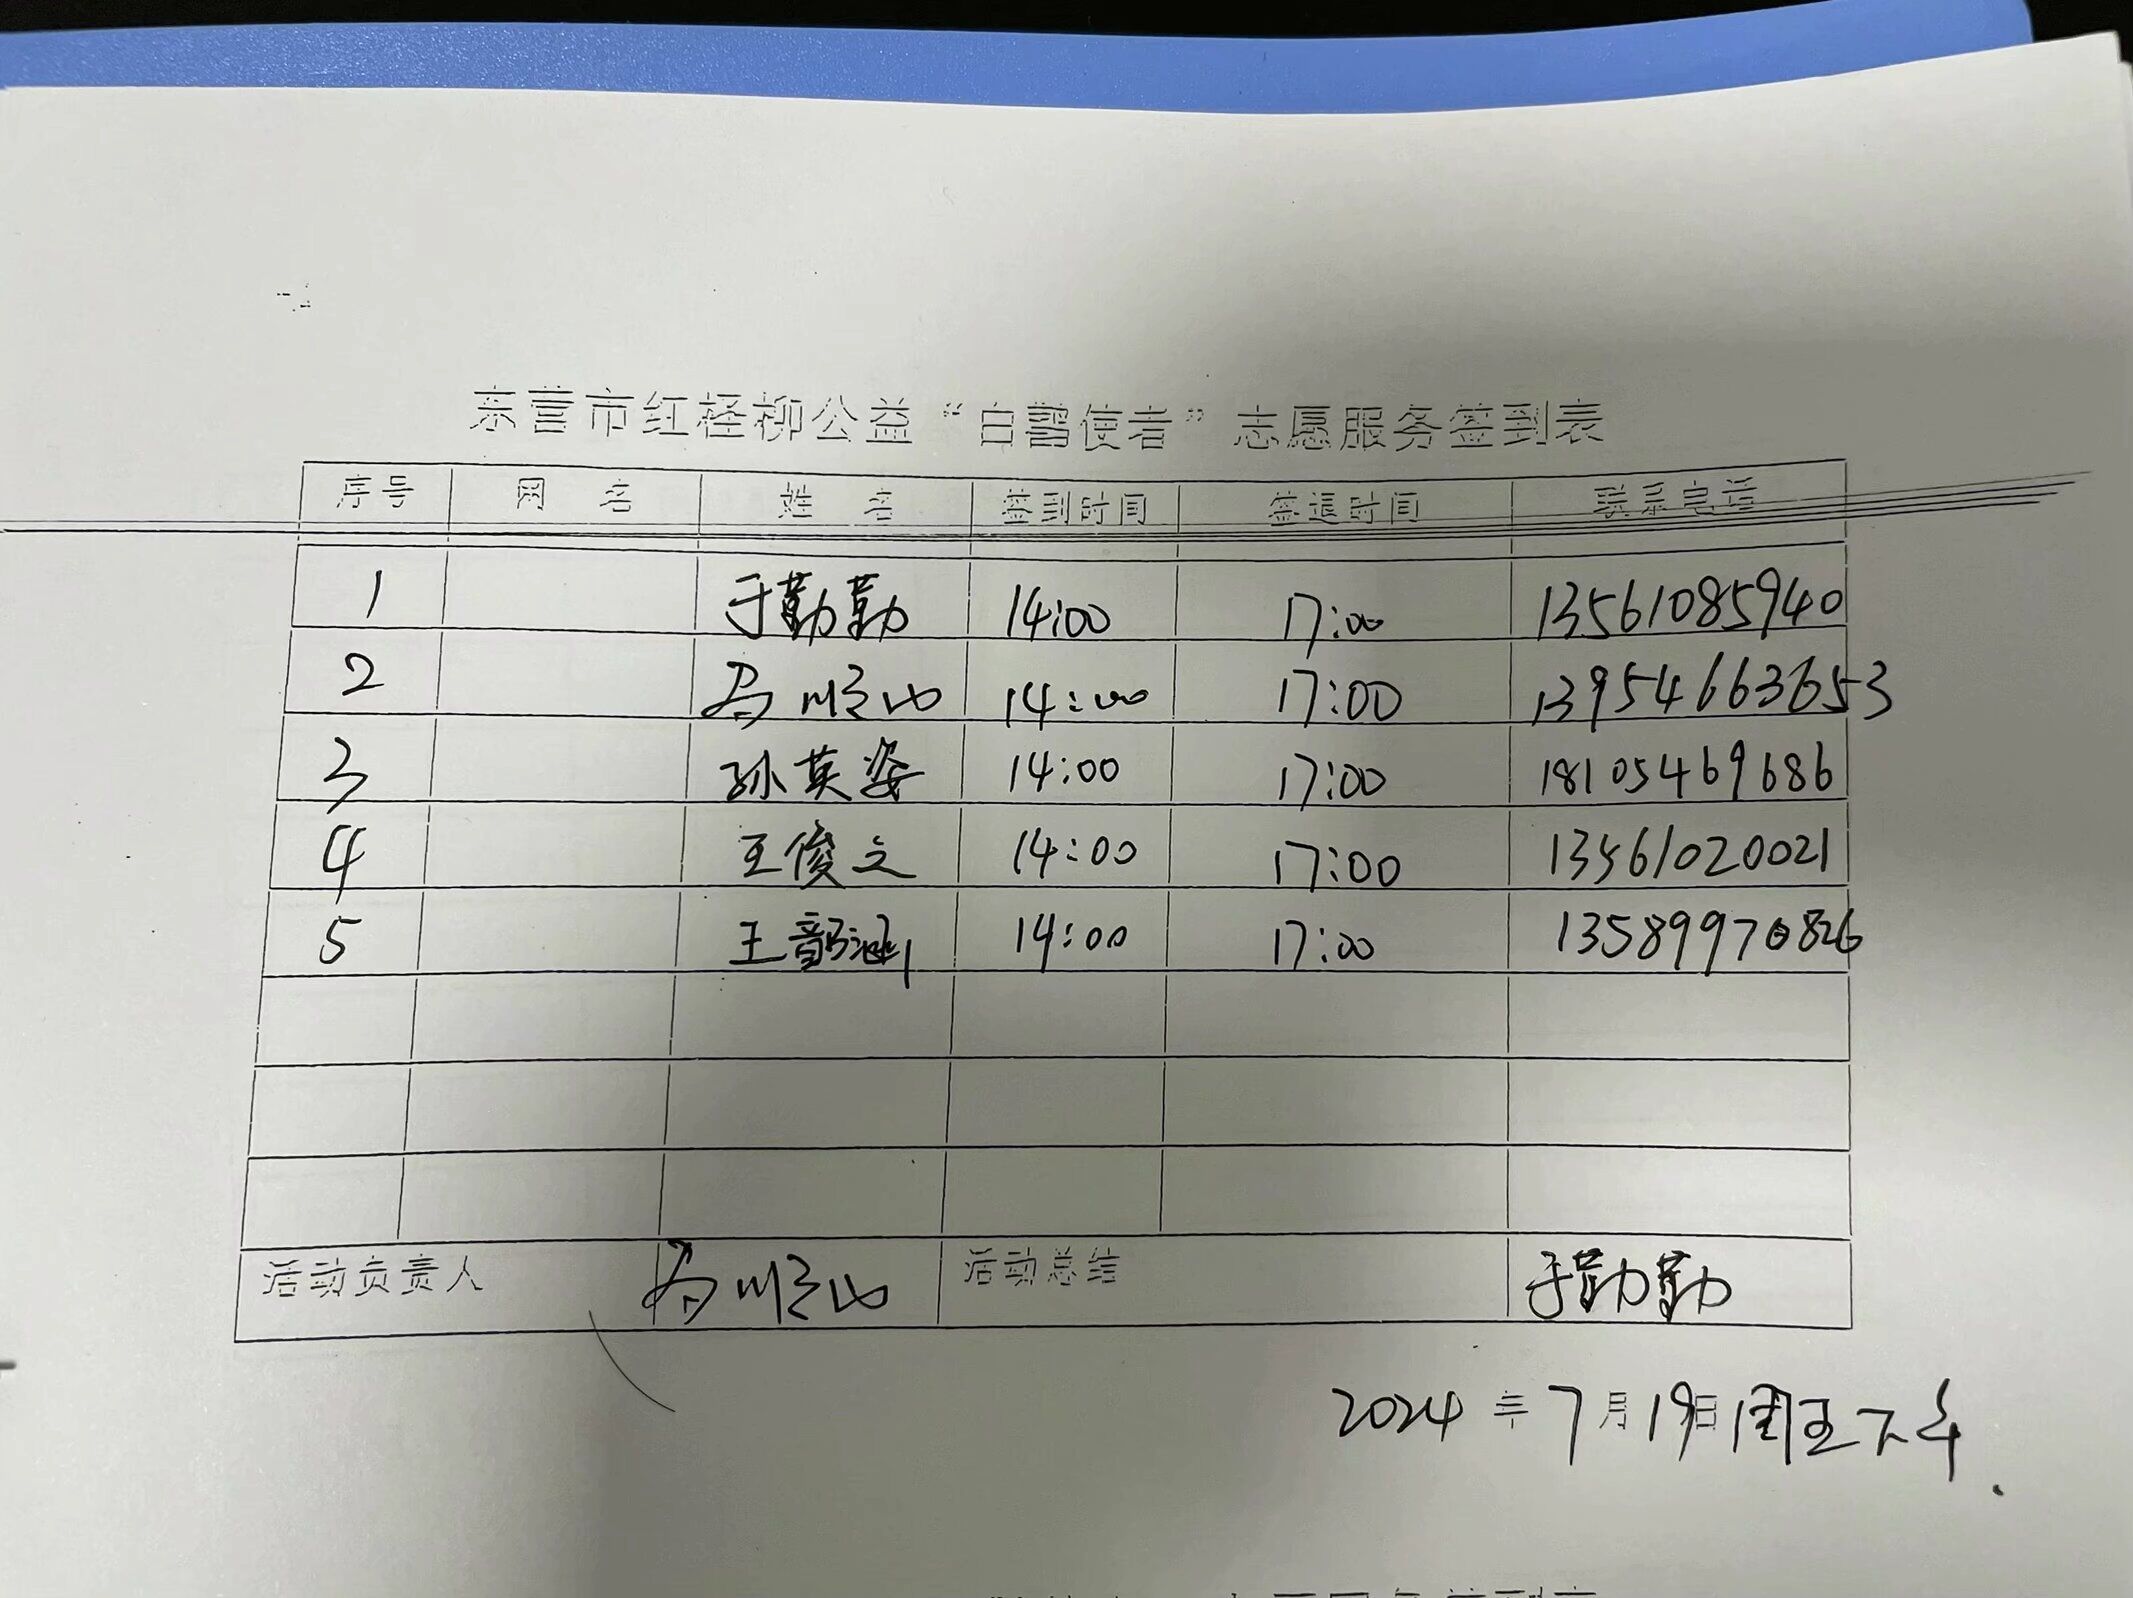 东营市红柽柳公益“白鹭使者”志愿服务签到表
序号 网 名 姓 名 签到时间 签退时间 联系电话
1 于勤勤 14:00 17:00 13561085940
2 马顺山 14:00 17:00 13954663653
3 孙英姿 14:00 17:00 18105469686
4 王俊之 14:00 17:00 13561020021
5 王韵涵 14:00 17:00 13589970826
活动负责人 马顺山 活动总结 于勤勤
2024年7月19日周五下午.